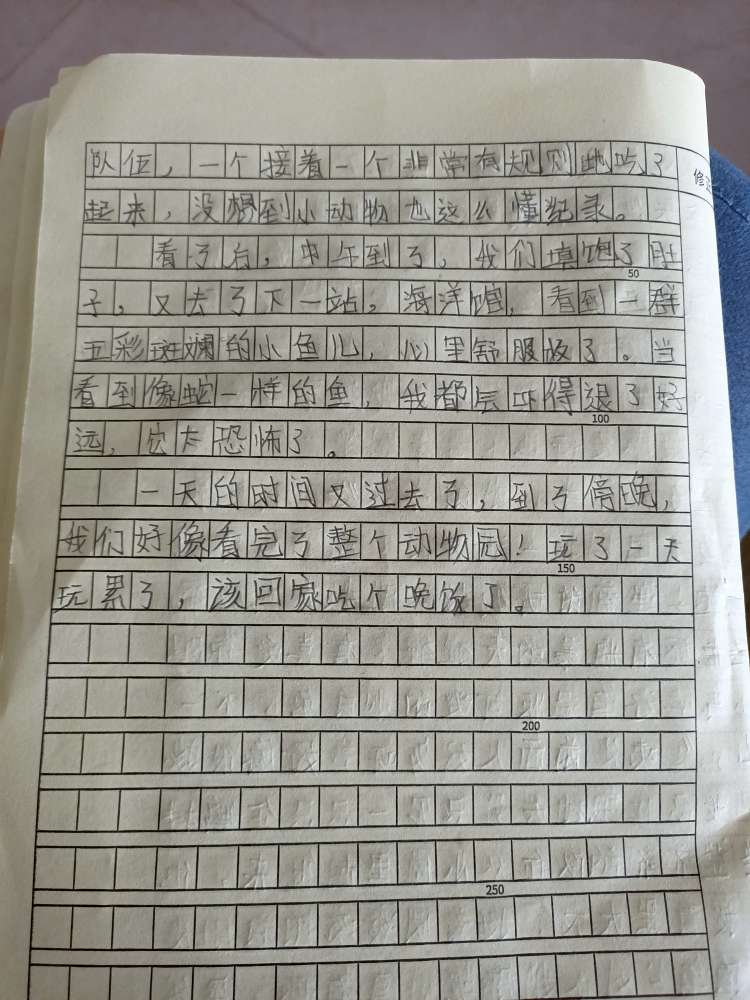 队伍，一个接着一个非常有规则地吃了
修
起来，没想到小动物也这么懂纪录。
看了后，中午到了，我们填饱了肚
50
子，又去了下一站。海洋馆，看到一群
五彩斑斓的小鱼儿，心里舒服极了。当
看到像蛇一样的鱼，我都后吓得退了好
100
远，它太恐怖了。
一天的时间又过去了，到了傍晚，
我们好像看完了整个动物园！玩了一天
150
玩累了，该回家吃个晚饭了。
200
250